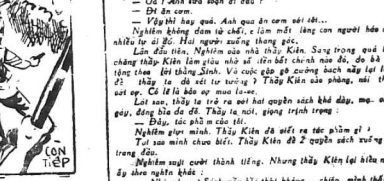 — Đi ăn cơm.
— Vậy thì hay quá. Anh qua ăn cơm với tôi...
Nghiêm không dám từ chối, e làm mất lòng con người hảo
nhiều tự ái đó. Hai người xuống thang gác.
Lần đầu tiên, Nghiêm vào nhà thầy Kiên. Sang trọng quá
chăng thầy Kiên làm giàu nhờ số tiền bất chính nào đó, do bà
tộng theo lời thằng Sinh. Và cuộc gặp gỡ cưỡng bách nầy lại
để thầy ta dò xét tư tưởng ? Thầy Kiên vào phòng, nói
sột sột. Có lẽ là bóc vợ mua la-ve.
Lát sau, thầy ta trở ra với hai quyển sách khá dày, mạ
gáy, đóng bìa da đỏ. Thầy ta nói, giọng trịnh trọng :
— Đây, tác phẩm của tôi.
Nghiêm giựt mình. Thầy Kiên đã viết ra tác phẩm gì
Tại sao mình chưa biết. Thầy Kiên để 2 quyển sách xuống
trang đầu.
Nghiêm suýt cười thành tiếng. Nhưng thầy Kiên lại hiểu
ấy theo nghĩa khác :
CÒN
TIẾP